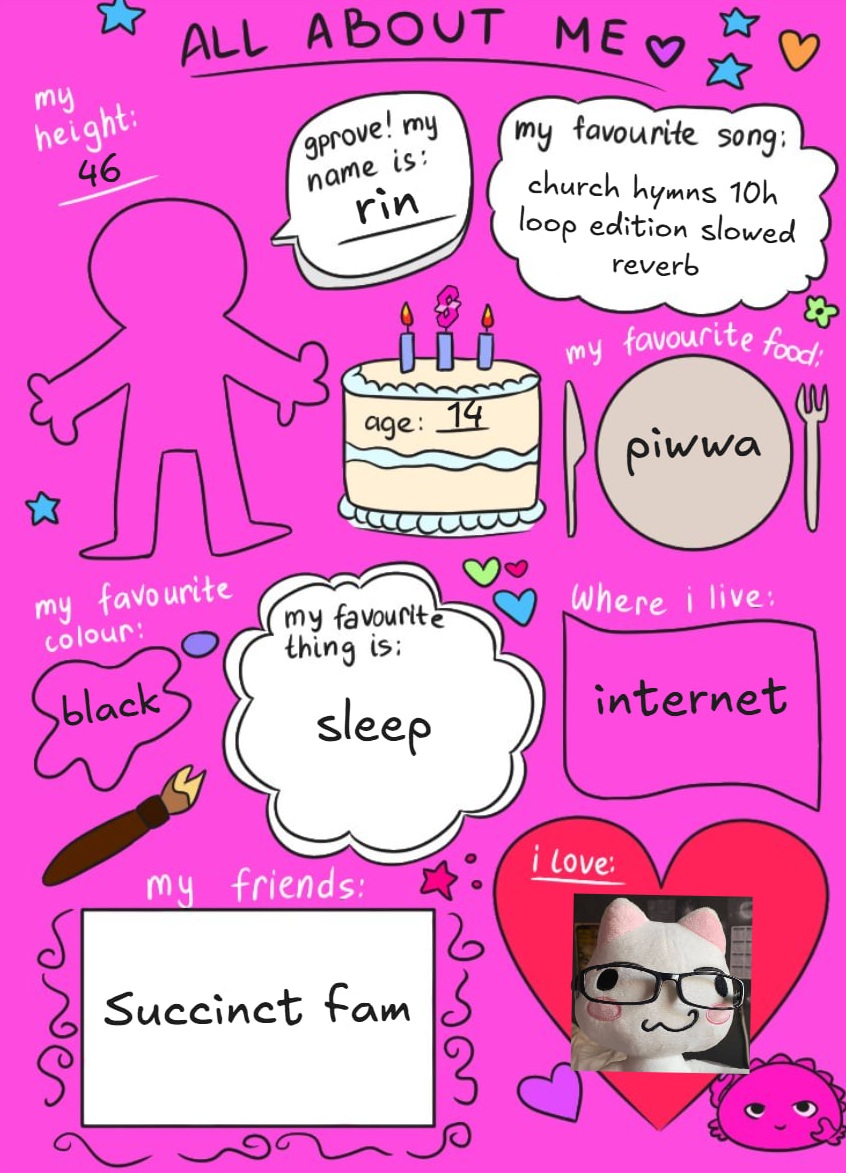 ALL ABOUT ME
my
height:
46
gprove! my
name is:
rin
my favourite song:
church hymns 10h
loop edition slowed
reverb
8
age: 14
my favourite food:
piwwa
my favourite
colour:
black
my favourite
thing is:
sleep
Where i live:
internet
my friends:
Succinct fam
i love: